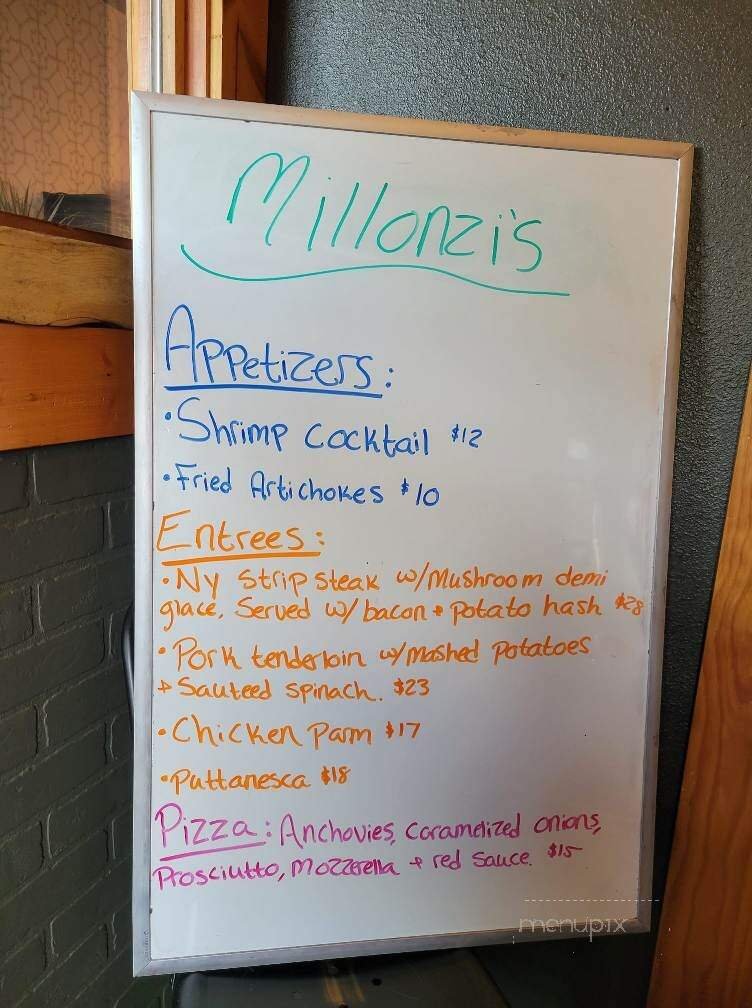 Millonzi's
Appetizers:
• Shrimp cocktail $12
• Fried Artichokes $10
Entrees:
• NY Strip steak w/Mushroom demi
glace. Served w/ bacon + potato hash $28
• Pork tenderloin w/mashed potatoes
+ Sauteed spinach. $23
• Chicken Parm $17
• Puttanesca $18
Pizza: Anchovies, caramelized onions,
Prosciutto, Mozzerella + red sauce. $15
menupix